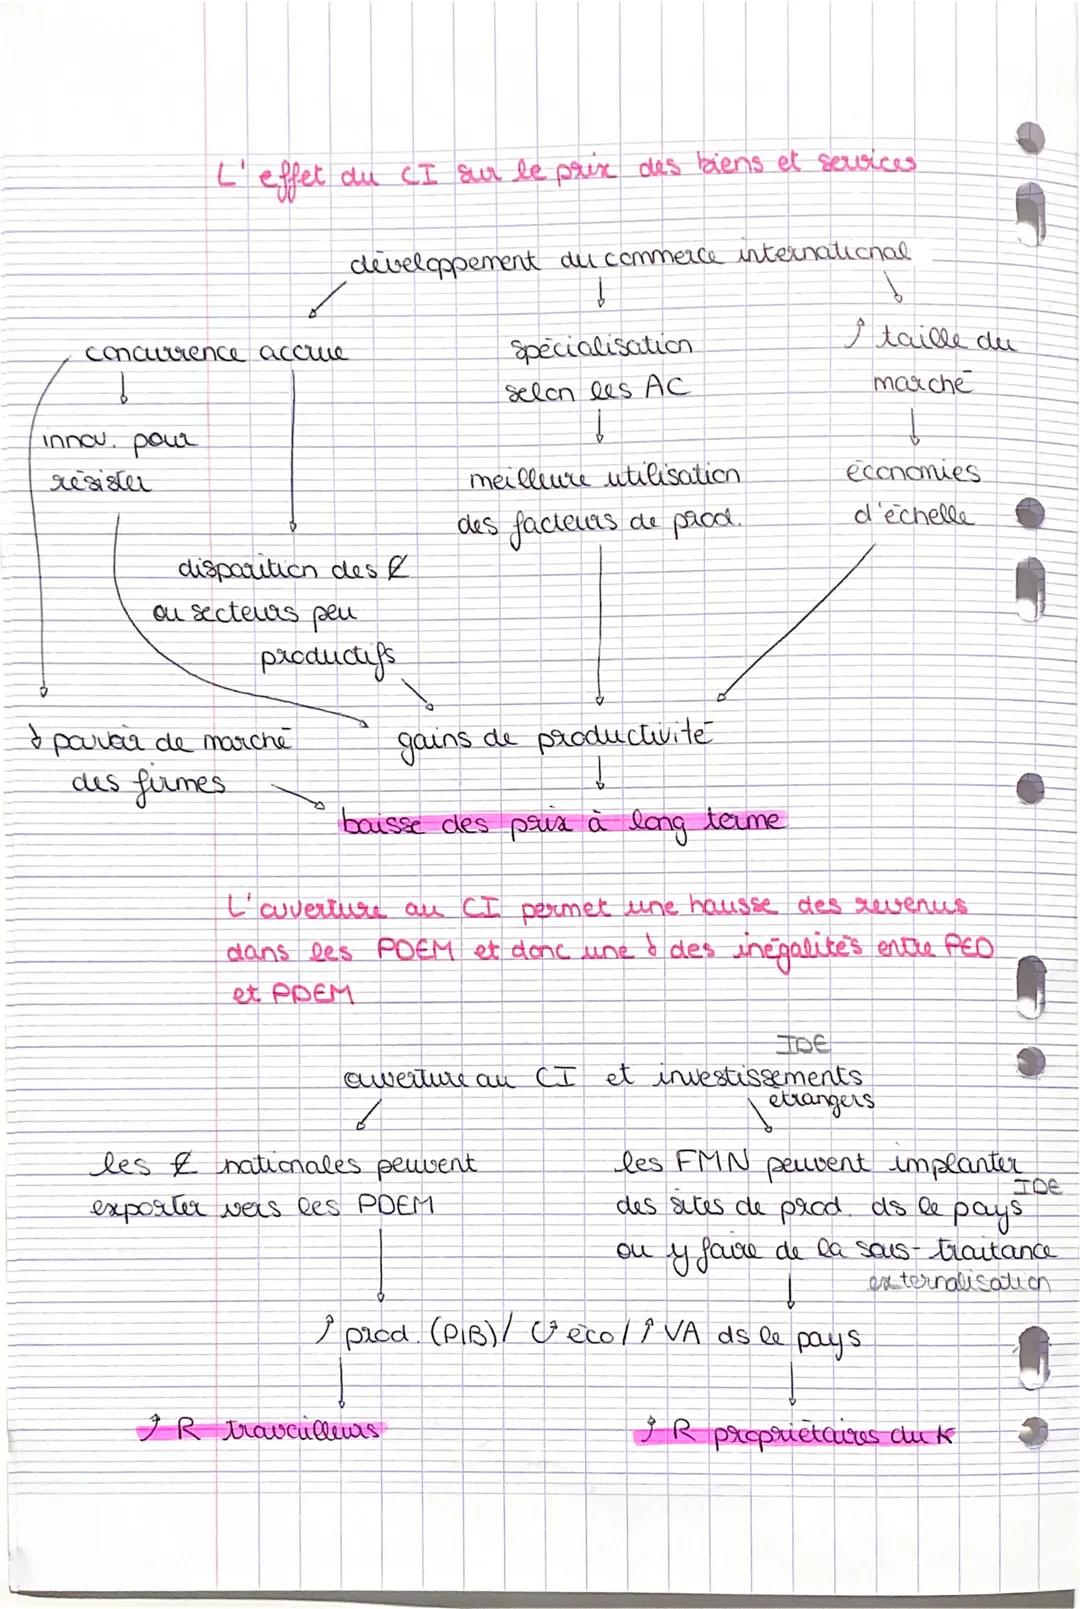 L'effet du CI sur le prix des biens et services
développement du commerce international
concurrence accrue
spécialisation
selon les AC
↑ taille du
marché
innov. pour
résister
meilleure utilisation
des facteurs de prod.
économies
d'échelle
disparition des E
ou secteurs peu
productifs
↓ pouvoir de marché
des firmes
gains de productivité
baisse des prix à long terme
L'ouverture au CI permet une hausse des revenus
dans les PDEM et donc une ↓ des inégalités entre PED
et PDEM
IDE
ouverture au CI et investissements
étrangers
les E nationales peuvent
exporter vers les PDEM
les FMN peuvent implanter
IDE
des sites de prod. ds le pays
ou y faire de la sous-traitance
externalisation
↑ prod. (PIB) / éco / ↑ VA ds le pays
↑ R travailleurs
↑ R propriétaires du K